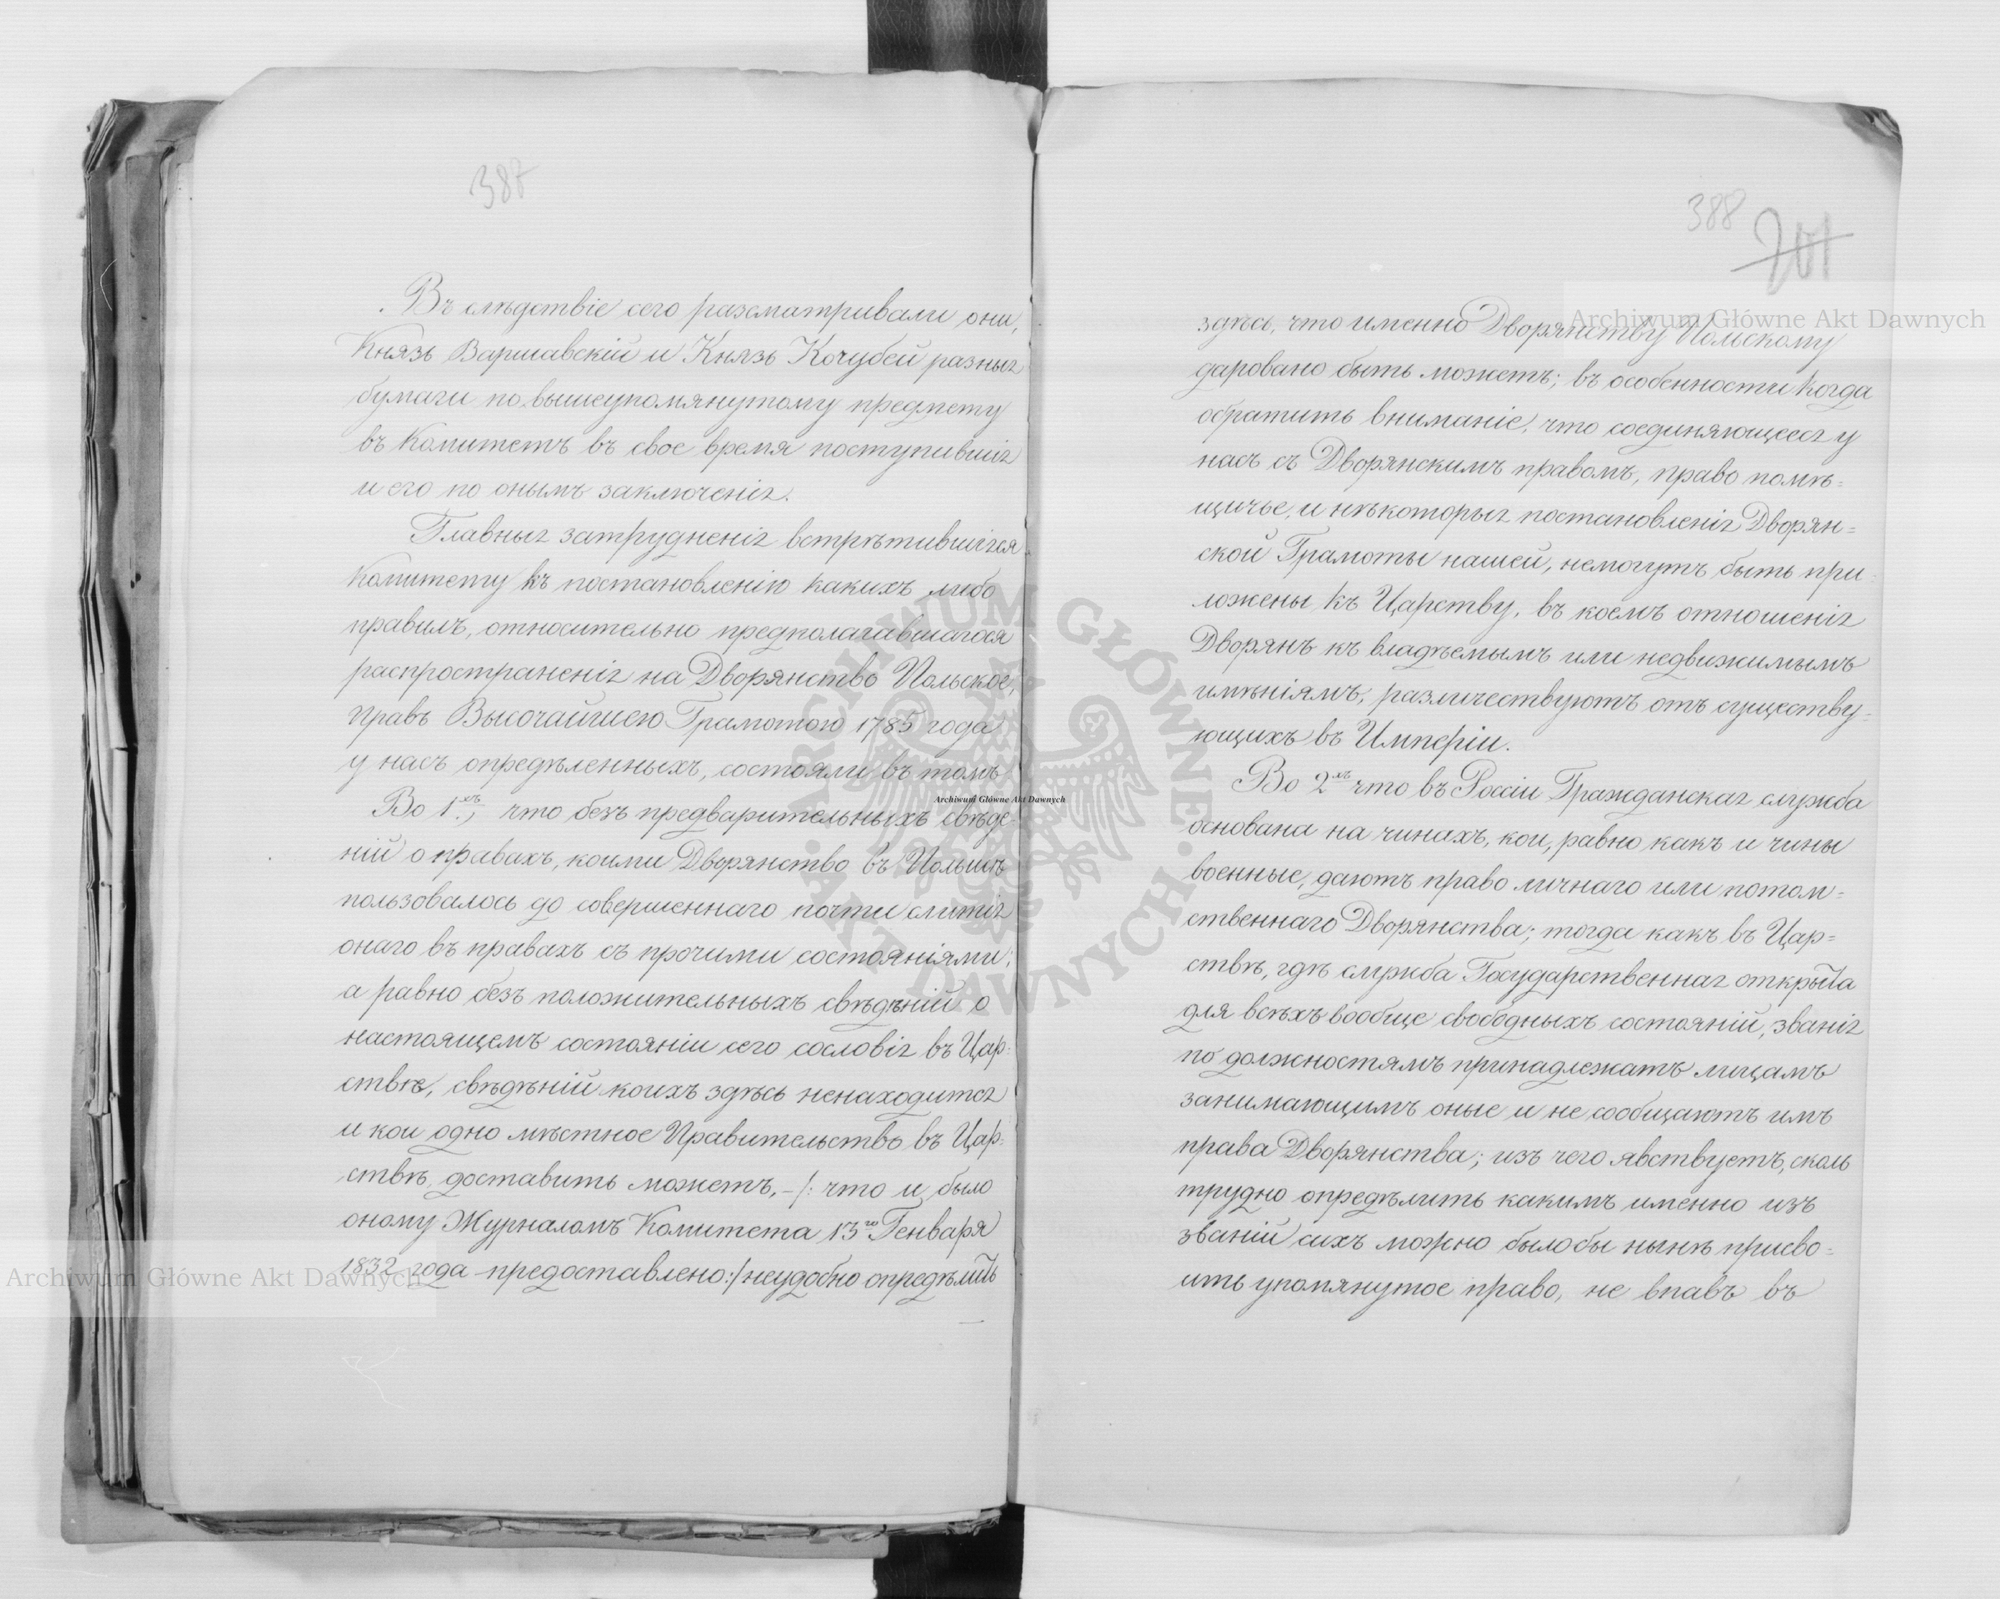 387
Въ слѣдствіе сего разсматривали они,
Князь Варшавскій и Князь Кочубей разныя
бумаги по вышеупомянутому предмету
въ Комитетъ въ свое время поступившія
и его по онымъ заключенія.
Главныя затрудненія встрѣтившіяся
Комитету къ постановленію какихъ либо
правилъ, относительно предполагавшагося
распространенія на Дворянство Польское,
правъ Высочайшею Грамотою 1785 года
у насъ опредѣленныхъ, состояли въ томъ
Во 1.хъ, что безъ предварительныхъ свѣде-
ній о правахъ, коими Дворянство въ Польшѣ
пользовалось до совершеннаго почти слитія
онаго въ правахъ съ прочими состояніями;
а равно безъ положительныхъ свѣдѣній о
настоящемъ состояніи сего сословія въ Цар-
ствѣ, свѣдѣній коихъ здѣсь ненаходится
и кои одно мѣстное Правительство въ Цар-
ствѣ доставить можетъ, -/: что и было
оному Журналомъ Комитета 13го Генваря
1832 года предоставлено:/ неудобно опредѣлить
388
701
здѣсь, что именно Дворянству Польскому
даровано быть можетъ; въ особенности когда
обратить вниманіе, что соединяющееся у
насъ съ Дворянскимъ правомъ, право помѣ-
щичье, и нѣкоторыя постановленія Дворян-
ской Грамоты нашей, немогутъ быть при-
ложены къ Царству, въ коемъ отношенія
Дворянъ къ владѣемымъ или недвижимымъ
имѣніямъ, различествуютъ отъ существу-
ющихъ въ Имперіи.
Во 2хъ что въ Россіи Гражданская служба
основана на чинахъ, кои, равно какъ и чины
военные, даютъ право личнаго или потом-
ственнаго Дворянства; тогда какъ въ Цар-
ствѣ, гдѣ служба Государственная открыта
для всѣхъ вообще свободныхъ состояній, званія
по должностямъ принадлежатъ лицамъ
занимающимъ оные и не сообщаютъ имъ
права Дворянства; изъ чего явствуетъ, сколь
трудно опредѣлить какимъ именно изъ
званій сихъ можно былобы нынѣ присво-
ить упомянутое право, не впавъ въ
Archiwum Główne Akt Dawnych
Archiwum Główne Akt Dawnych
Archiwum Główne Akt Dawnych
ARCHIWUM GŁÓWNE AKT DAWNYCH